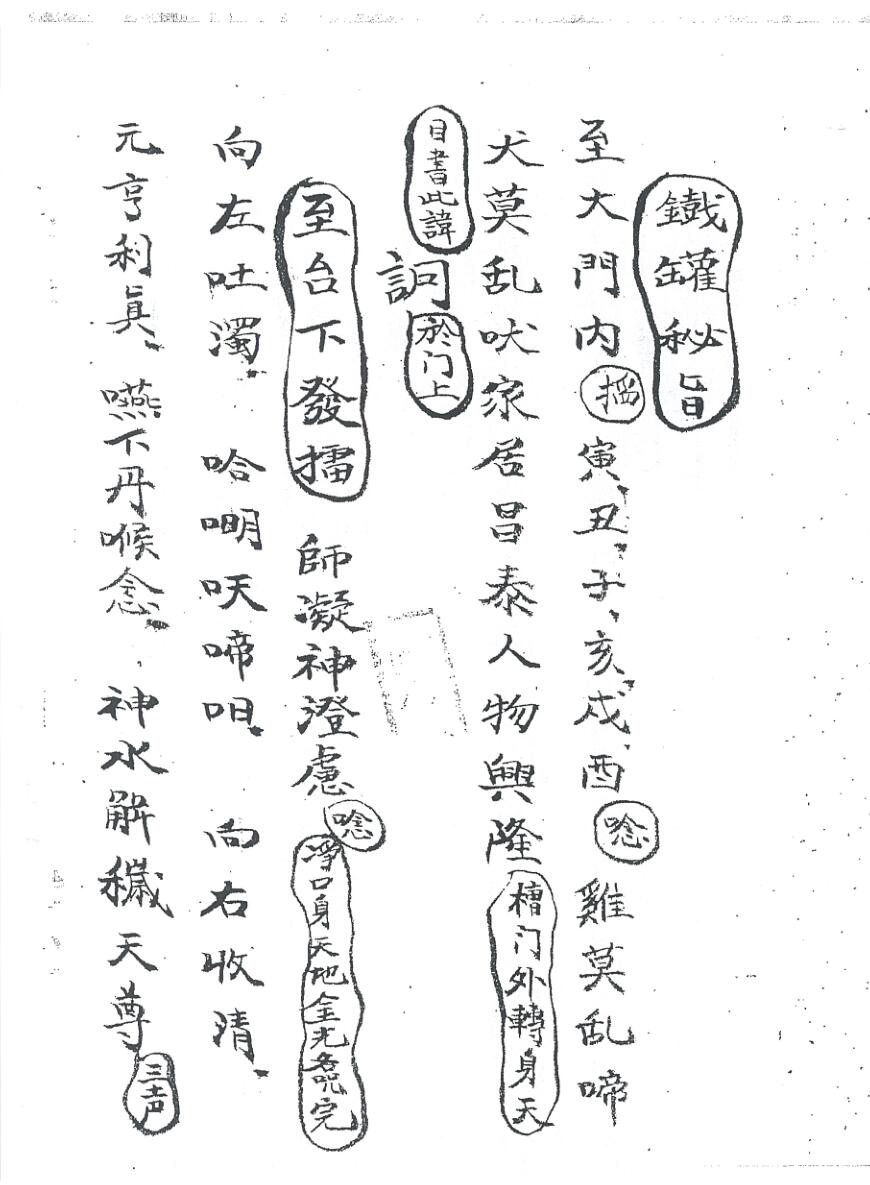 鐵罐秘旨
至大門內 掐 寅、丑、子、亥、戌、酉 唸 雞莫乱啼
犬莫乱吠家居昌泰人物興隆 檐门外轉身天
目書此諱 詗 於门上
至台下發擂 師凝神澄慮 唸 淨口身天地金光各咒完
向左吐濁、 哈𠵼呋啼呾、 向右收清、
元亨利眞、嚥下丹喉念、神水解穢天尊 三声